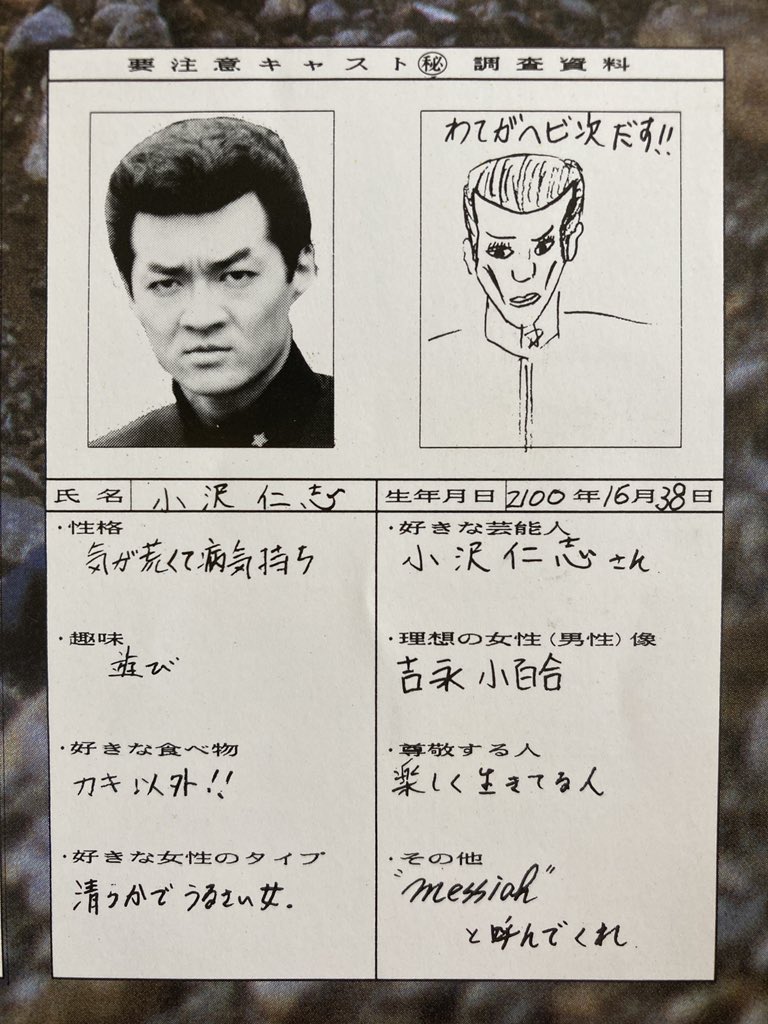 要注意キャスト㊙調査資料
わてがヘビ次だす!!
氏名 小沢仁志
生年月日 2100年16月38日
・性格
気が荒くて病気持ち
・趣味
並び
・好きな食べ物
カキ以外!!
・好きな女性のタイプ
清らかでうるさい女.
・好きな芸能人
小沢仁志さん
・理想の女性(男性)像
吉永小百合
・尊敬する人
楽しく生きてる人
・その他
"messiah"
と呼んでくれ